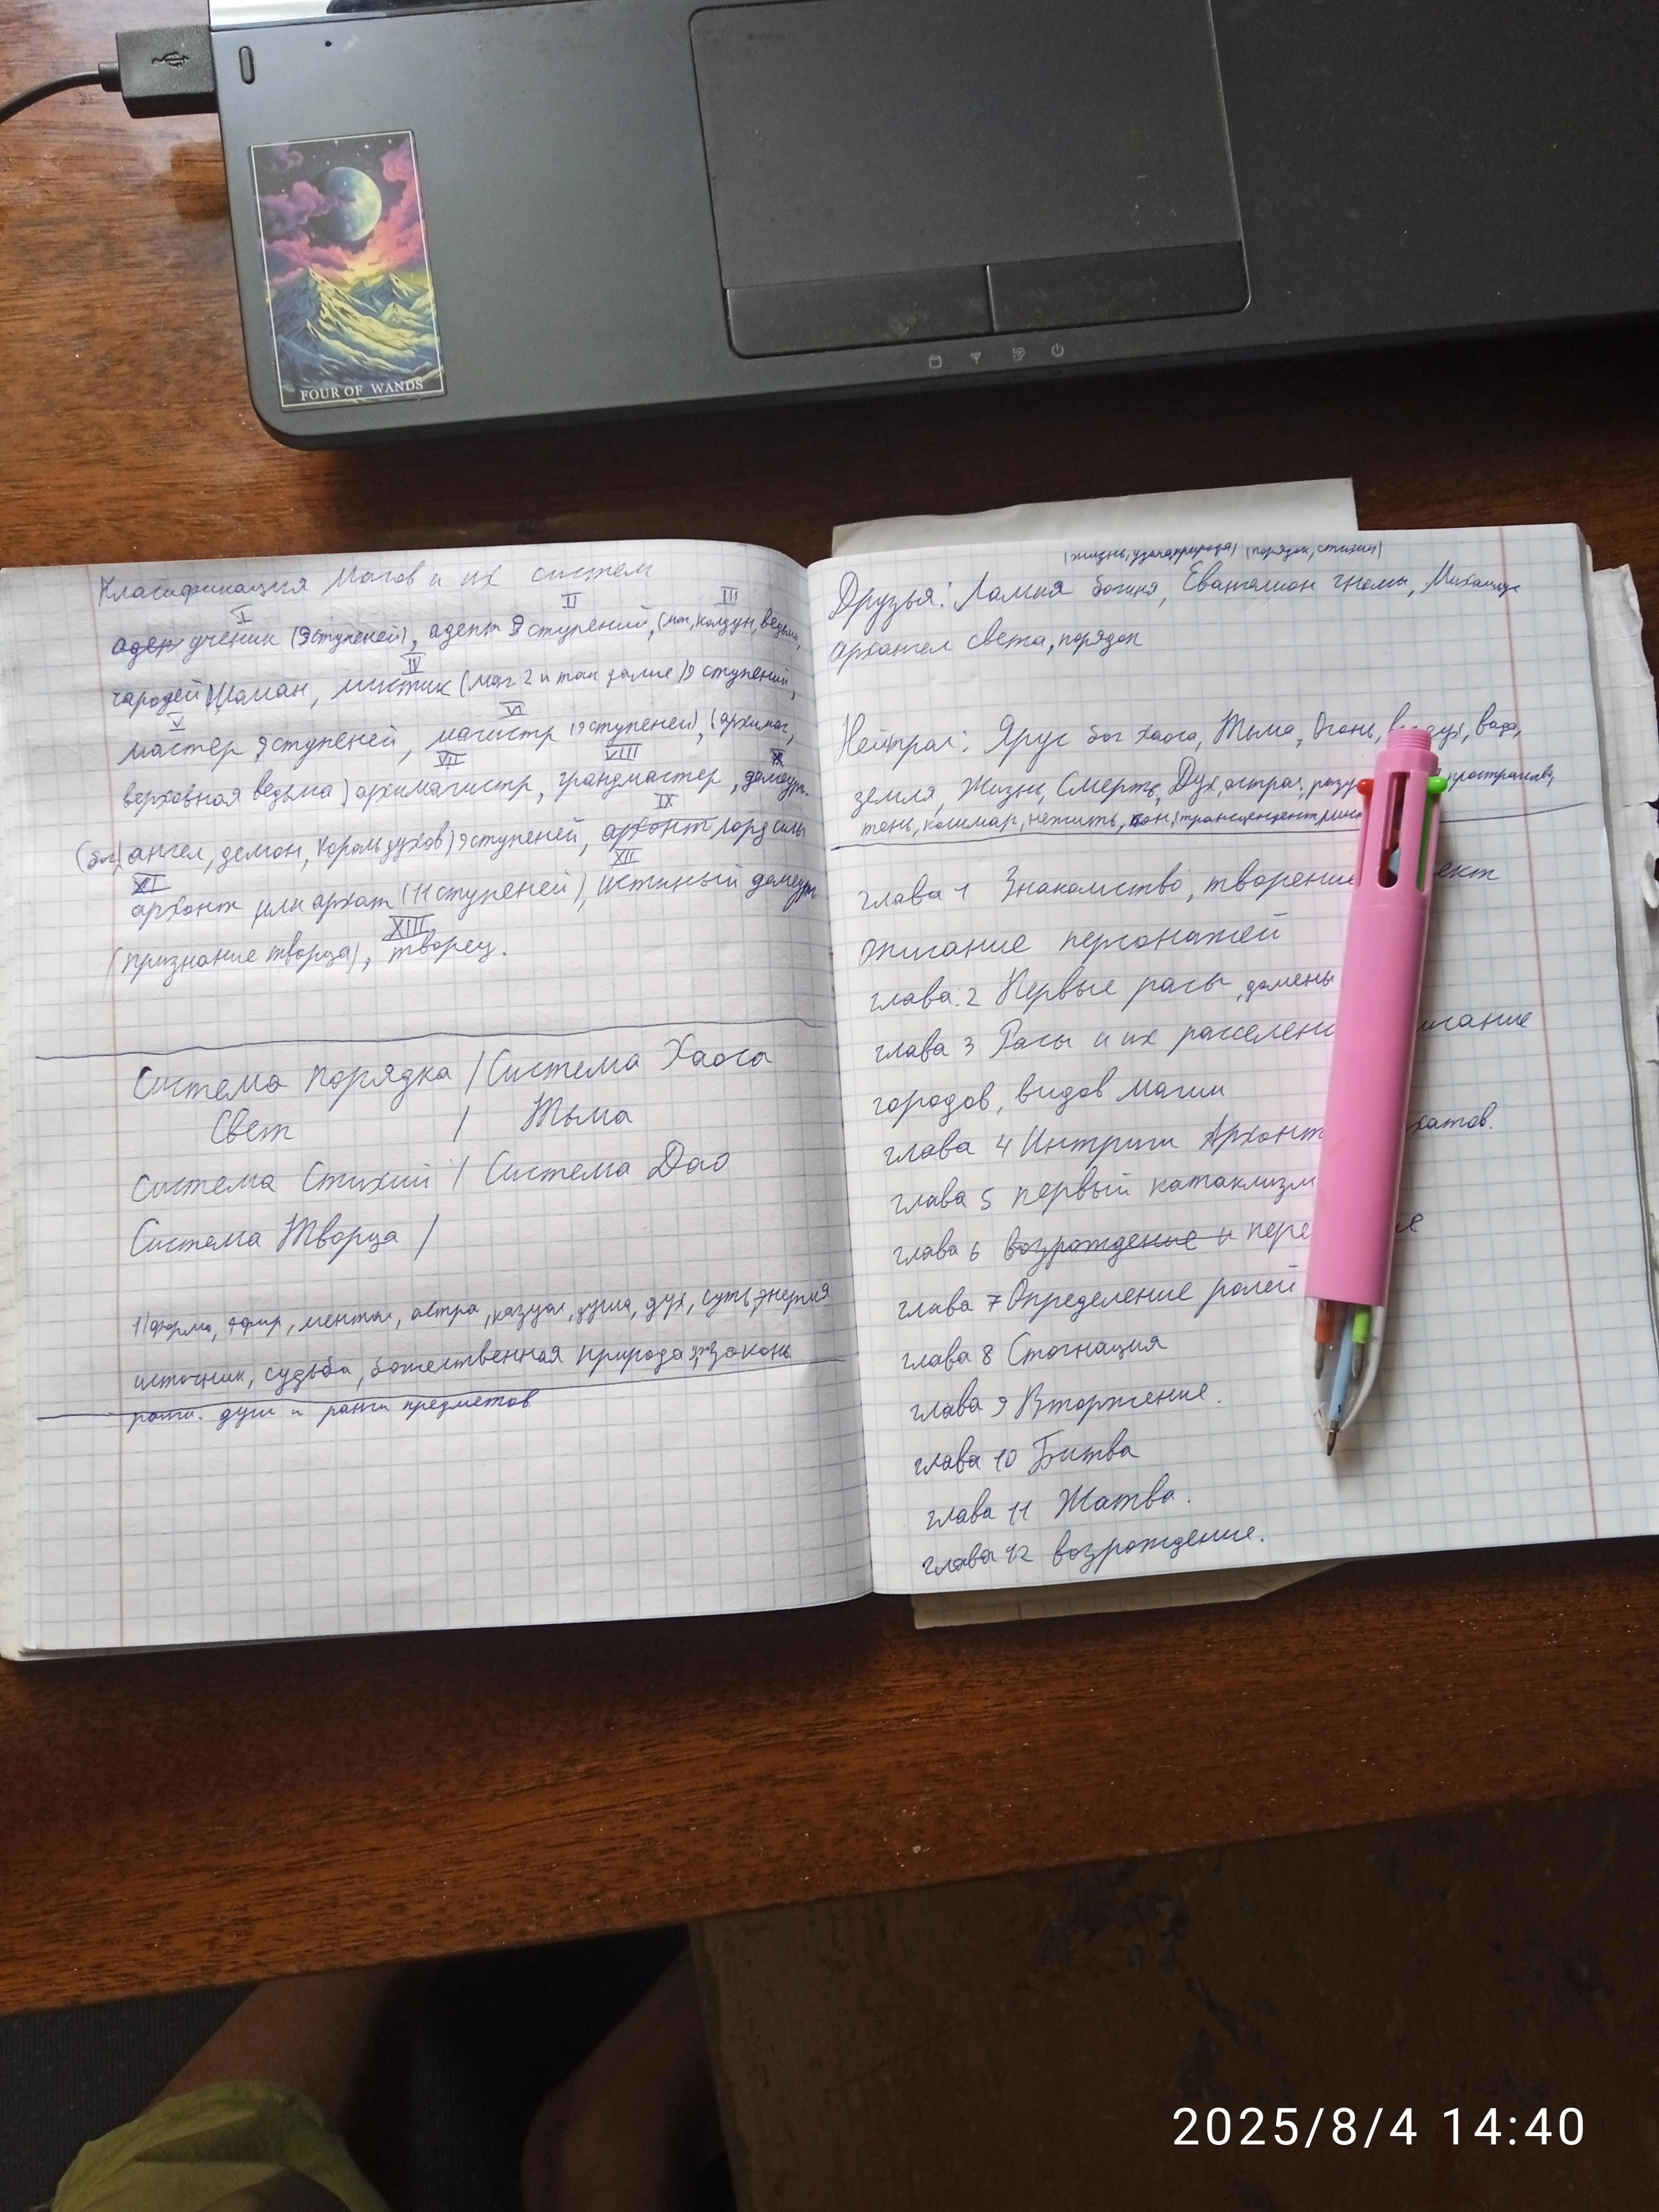 FOUR OF WANDS
Класификация Магов и их систем
I II III
ученик (9 ступеней), адепт 9 ступений, (маг, колдун, ведьма,
IV
чародей) Шаман, мистик (маг 2 и так далие) 9 ступений,
V VI
мастер 9 ступеней, магистр (9 ступеней), (архимаг,
VII VIII X
верховная ведьма) архимагистр, грандмастер, демиург.
IX
(бог, ангел, демон, король духов) 9 ступеней, архонт лорд силы
XI XII
архонт или архат (11 ступеней), истиный демиург
XIII
(признание творца), творец.
Система порядка / Система Хаоса
Свет / Тьма
Система Стихий / Система Дао
Система Творца /
1) форма, эфир, ментал, астра, казуал, душа, дух, суть, энергия
источник, судьба, божественная природа, законы
ранги души и ранги предметов
(жизнь, удача, природа) (порядок, стихия)
Друзья: Ламия богиня, Евангелион гномы, Михаилус
архангел света, порядок
Нейтрал: Ярус бог хаоса, Тьма, Огонь, вода,
земля, Жизнь, Смерть, Дух, астрал, пространство,
тень, кошмар, нежить,
глава 1 Знакомство, творение
описание персонажей
глава 2 Первые расы, домены
глава 3 Расы и их
городов, видов магии
глава 4 Интриги
глава 5 первый катаклизм
глава 6 возрождение и
глава 7 Определение ролей
глава 8 Стогнация
глава 9 Вторжение.
глава 10 Битва
глава 11 Жатва.
глава 12 возрождение.
2025/8/4 14:40